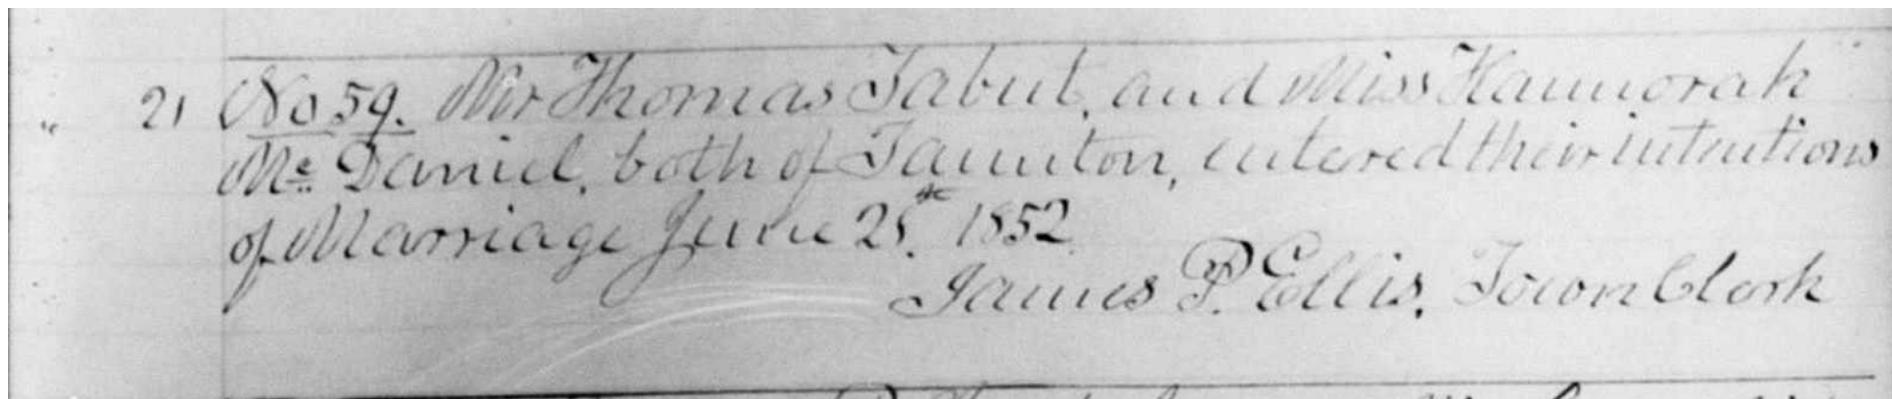 " 21 No 59. Mr Thomas Tabut, and Miss Hannorah
Mc. Daniel, both of Taunton, entered their intentions
of Marriage June 21st. 1852.
James P. Ellis, Town Clerk